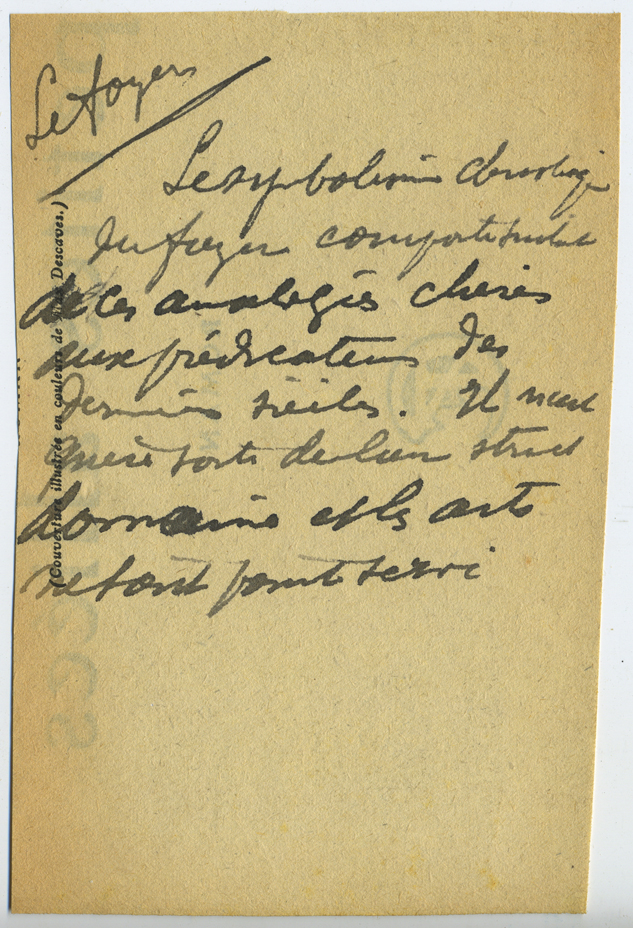 Le foyer
Le symbolisme chrétien
du foyer comporte surtout
de ces analogies chères
aux prédicateurs des
derniers siècles. Il n'est
guère sorti de leur strict
domaine et les arts
ne s'en sont point servi
(Couverture illustrée en couleurs de Descaves.)